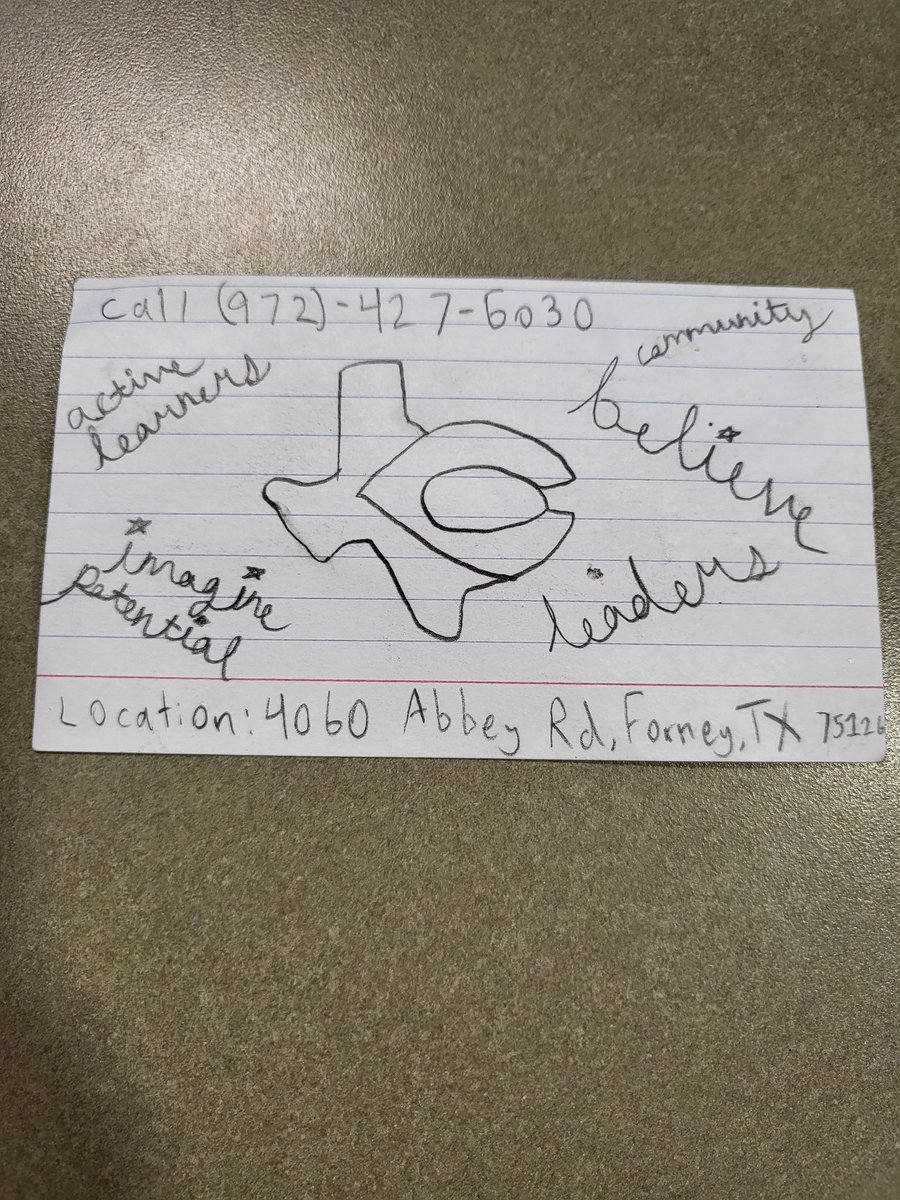 call (972)-427-6030
community
active
learners
believe
imagine
Potential
leaders
Location: 4060 Abbey Rd, Forney, TX 75126